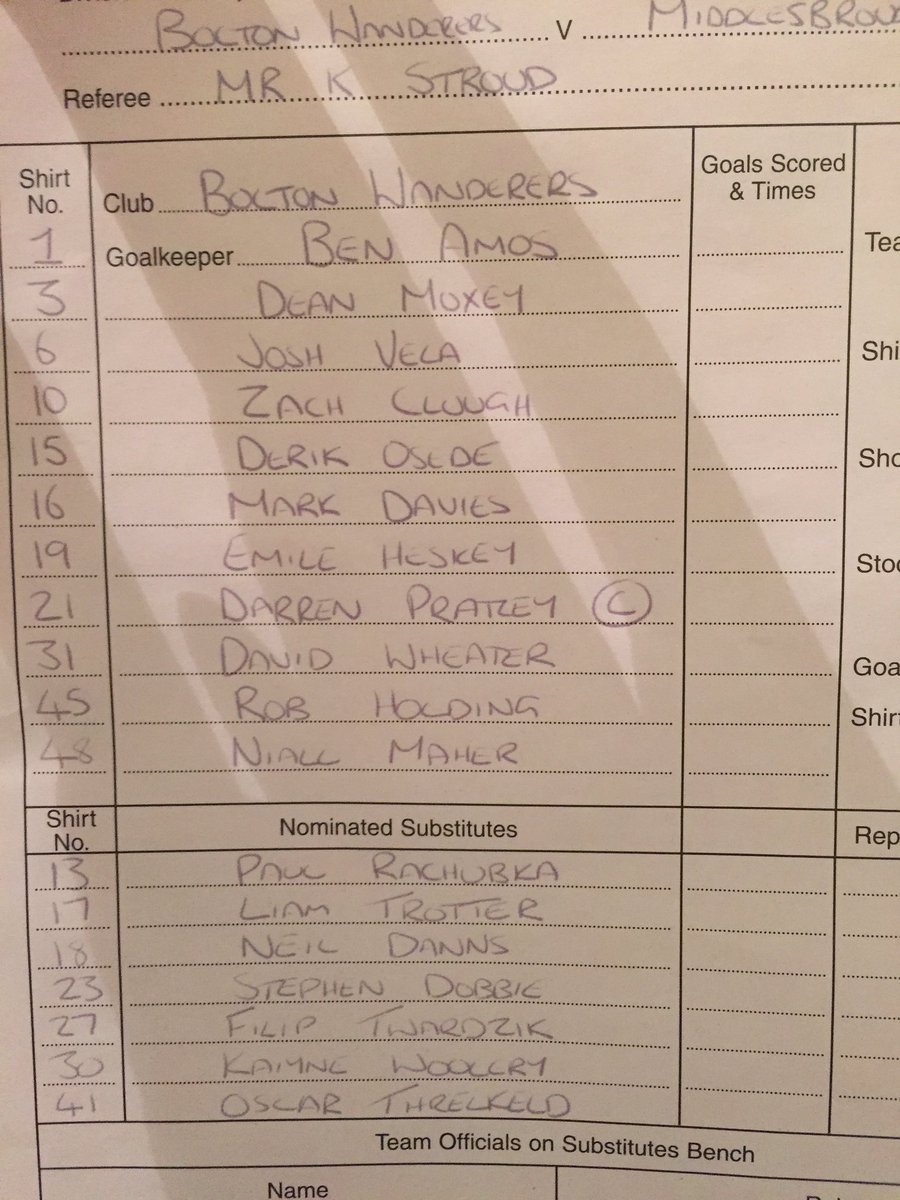 BOLTON WANDERERS V MIDDLESBROU
Referee MR K STROUD
Shirt No. Club BOLTON WANDERERS Goals Scored & Times
1 Goalkeeper BEN AMOS Tea
3 DEAN MOXEY
6 JOSH VELA Shi
10 ZACH CLOUGH
15 DERIK OSEDE Sho
16 MARK DAVIES
19 EMILE HESKEY Stoc
21 DARREN PRATLEY (C)
31 DAVID WHEATER Goa
45 ROB HOLDING Shirt
48 NIALL MAHER
Shirt No. Nominated Substitutes Rep
13 PAUL RACHUBKA
17 LIAM TROTTER
18 NEIL DANNS
23 STEPHEN DOBBIE
27 FILIP TWARDZIK
30 KAIYNE WOOLERY
41 OSCAR THRELKELD
Team Officials on Substitutes Bench
Name